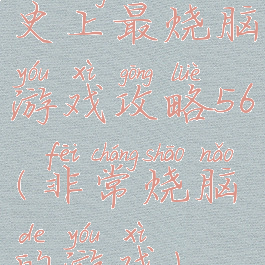 史上最烧脑
yóu xì gōng lüè
游戏攻略56
fēi cháng shāo nǎo
(非常烧脑
de yóu xì
的游戏